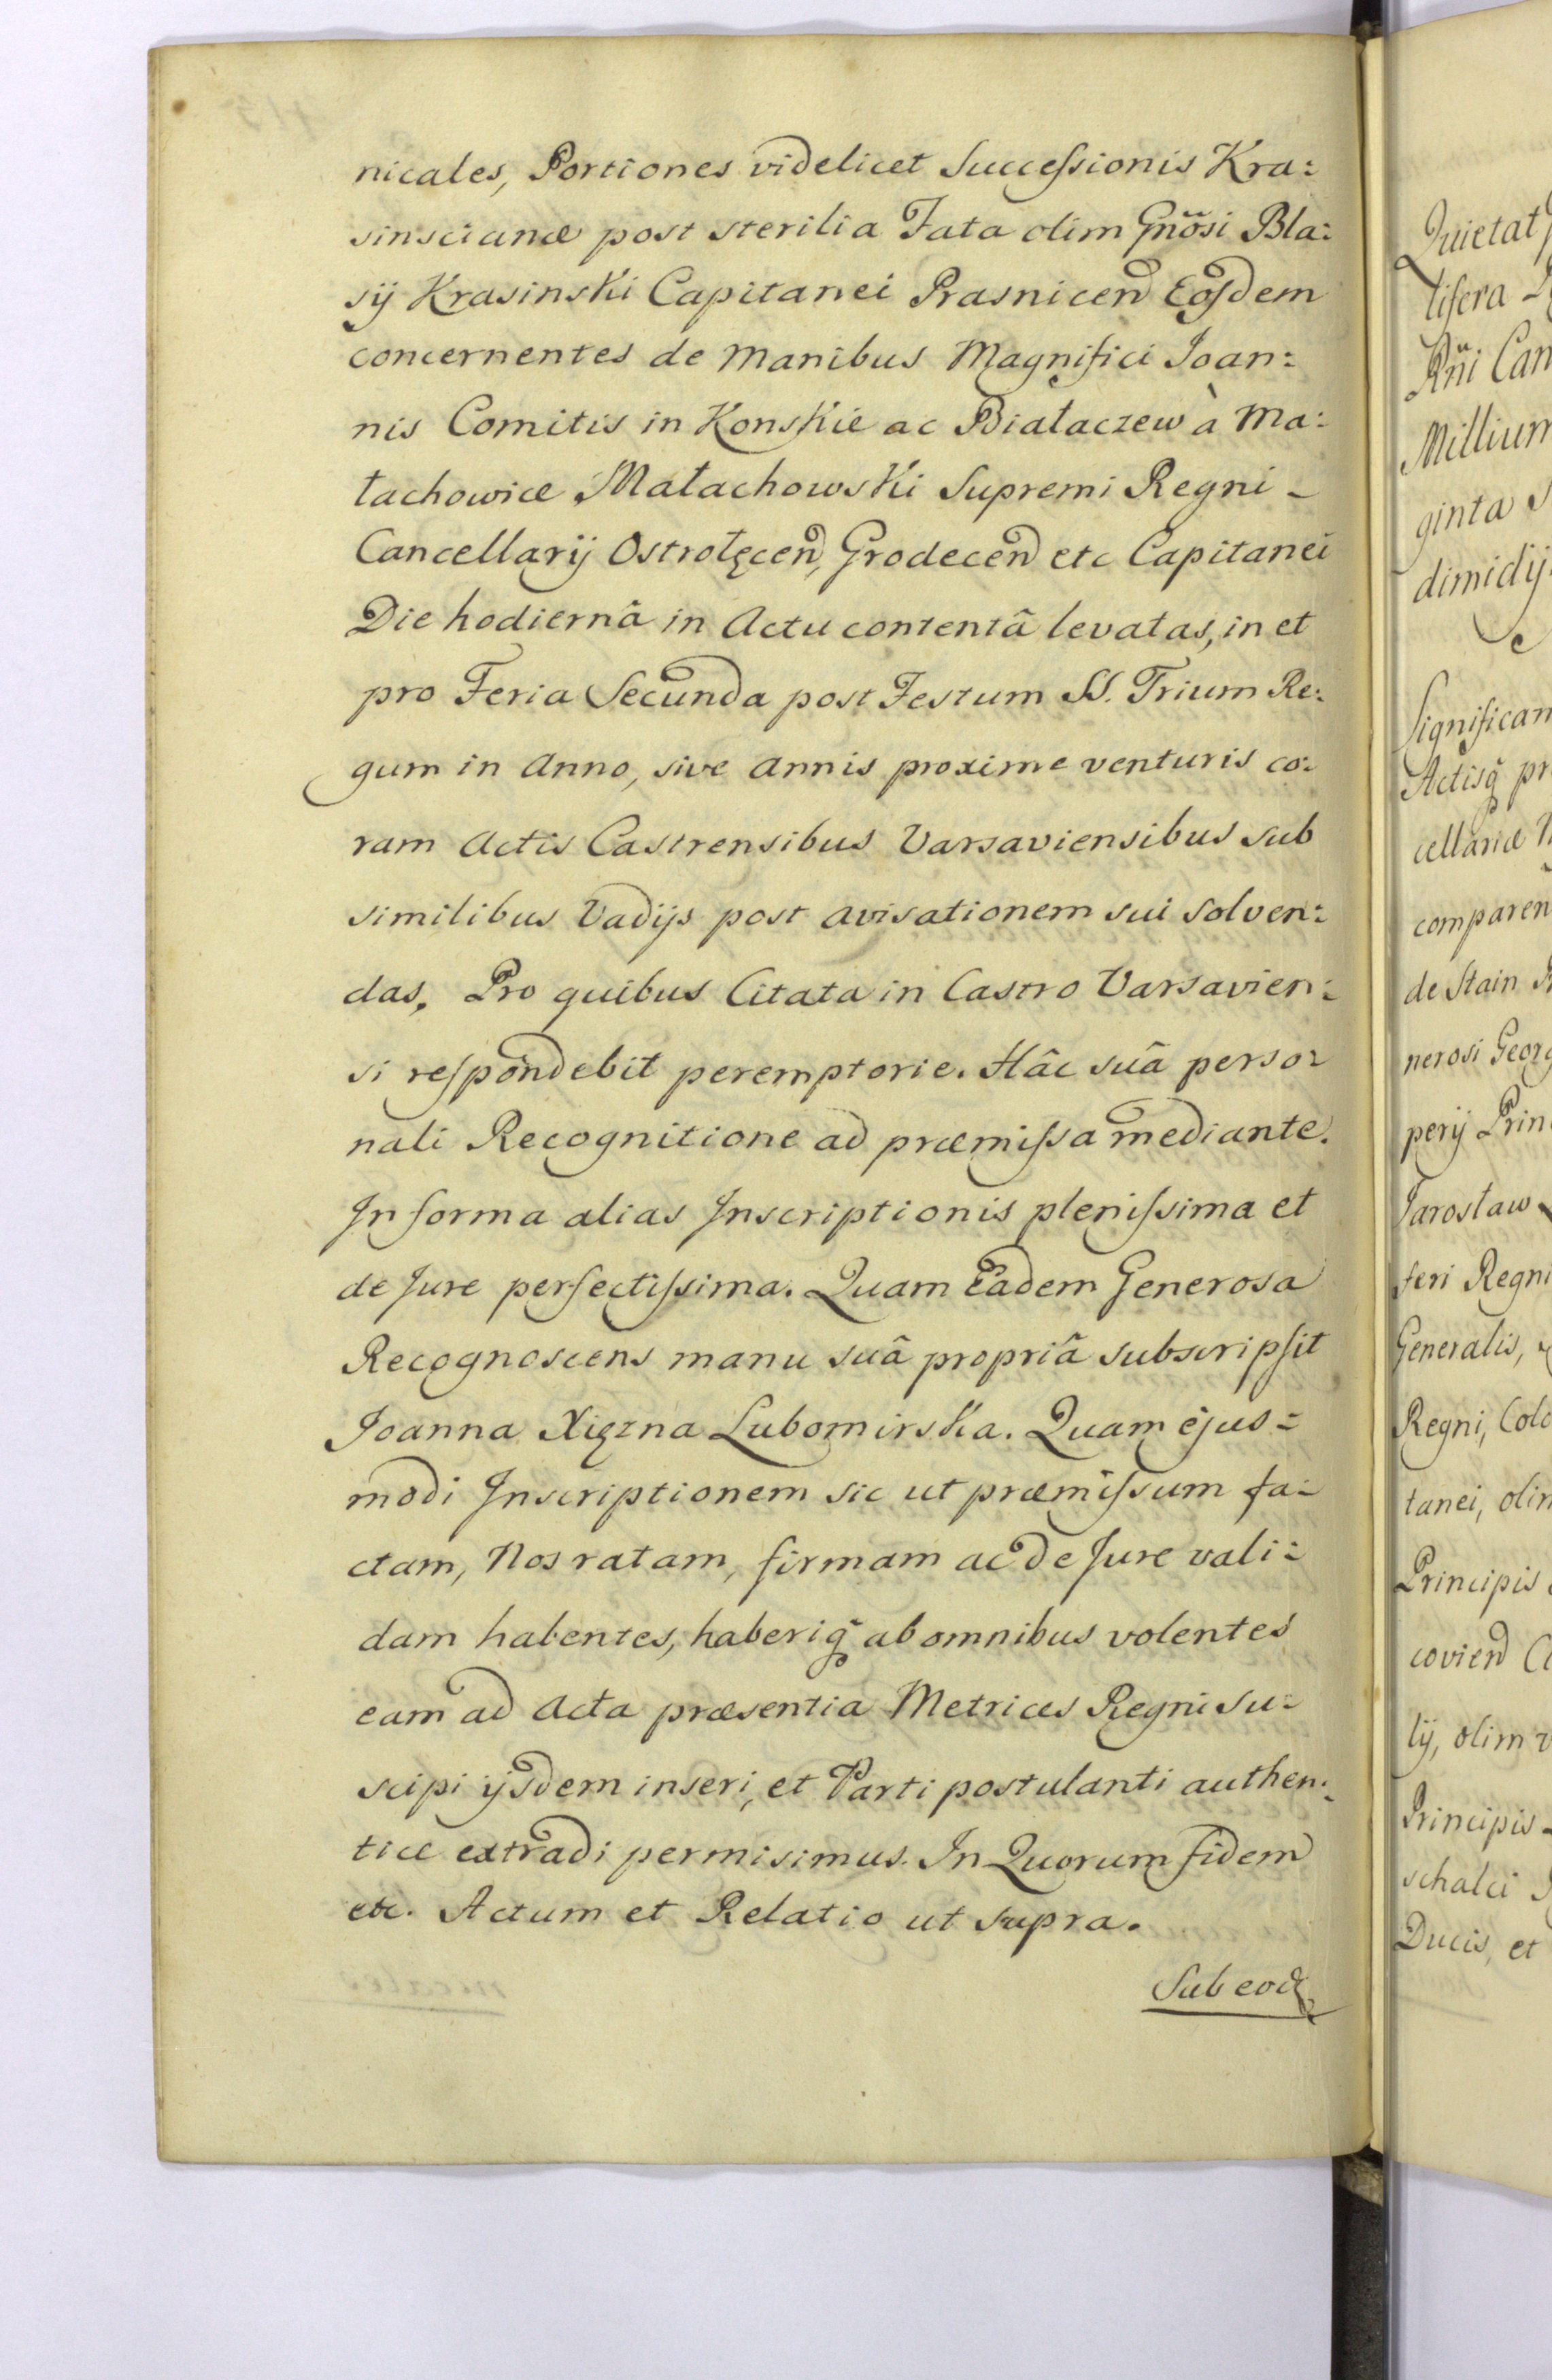 nicales, Portiones videlicet Successionis Kra:
sinscianæ post sterilia Fata olim Gnõsi Bla:
sij Krasinski Capitanei Prasnicen Eosdem
concernentes de Manibus Magnifici Joan:
nis Comitis in Konskie ac Białaczew à Ma:
łachowice Małachowski Supremi Regni -
Cancellarij Ostrołęcen, Grodecen etc Capitanei
Die hodiernâ in Actu contentâ levatas, in et
pro Feria Secunda post Festum SS. Trium Re:
gum in Anno, sive Annis proxime venturis co:
ram Actis Castrensibus Varsaviensibus sub
similibus Vadijs post avisationem sui solven:
das. Pro quibus Citata in Castro Varsavien:
si respondebit peremptorie. Hâc suâ perso:
nali Recognitione ad præmissa mediante.
In forma alias Inscriptionis plenissima et
de Jure perfectissima. Quam Eadem Generosa
Recognoscens manu suâ propriâ subscripsit
Joanna Xięzna Lubomirska. Quam ejus:
modi Inscriptionem sic ut præmissum fa:
ctam, Nos ratam, firmam ac de Jure vali:
dam habentes, haberiq̃ ab omnibus volentes
eam ad Acta præsentia Metrices Regni su:
scipi ijsdem inseri, et Parti postulanti authen:
tice extradi permisimus. In Quorum fidem
etc. Actum et Relatio ut supra.
Sub eod
Quietat
tifera
Rñi Can
Millium
ginta
dimidij
Significam
Actisq̃ pr
cellariæ
comparen
de Stain
nerosi Georg
perij Prin
Jarosław
feri Regni
Generalis,
Regni, Colo
tanei, olim
Principis
covien
lij, olim
Principis
schalci
Ducis, et